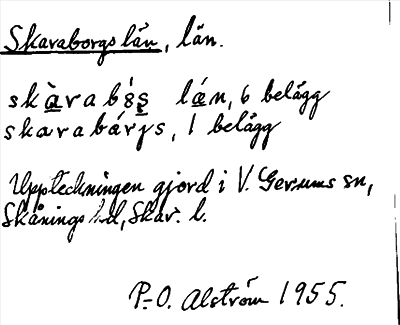 Skaraborgs län, län.
skàrabórs län, 6 belägg
skarabárjs, 1 belägg
Uppteckningen gjord i V. Gerums sn,
Skånings hd, Skar. l.
P.-O. Alström 1955.